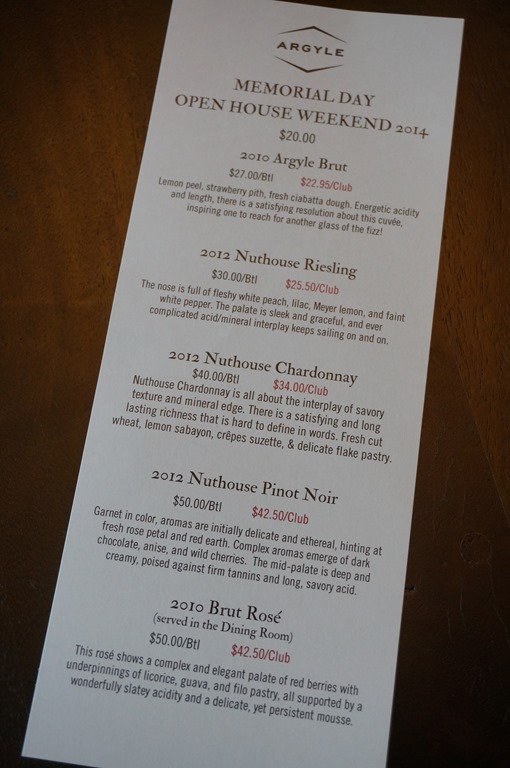 ARGYLE
MEMORIAL DAY
OPEN HOUSE WEEKEND 2014
$20.00
2010 Argyle Brut
$27.00/Btl $22.95/Club
Lemon peel, strawberry pith, fresh ciabatta dough. Energetic acidity
and length, there is a satisfying resolution about this cuvée,
inspiring one to reach for another glass of the fizz!
2012 Nuthouse Riesling
$30.00/Btl $25.50/Club
The nose is full of fleshy white peach, lilac, Meyer lemon, and faint
white pepper. The palate is sleek and graceful, and ever
complicated acid/mineral interplay keeps sailing on and on.
2012 Nuthouse Chardonnay
$40.00/Btl $34.00/Club
Nuthouse Chardonnay is all about the interplay of savory
texture and mineral edge. There is a satisfying and long
lasting richness that is hard to define in words. Fresh cut
wheat, lemon sabayon, crêpes suzette, & delicate flake pastry.
2012 Nuthouse Pinot Noir
$50.00/Btl $42.50/Club
Garnet in color, aromas are initially delicate and ethereal, hinting at
fresh rose petal and red earth. Complex aromas emerge of dark
chocolate, anise, and wild cherries. The mid-palate is deep and
creamy, poised against firm tannins and long, savory acid.
2010 Brut Rosé
(served in the Dining Room)
$50.00/Btl $42.50/Club
This rosé shows a complex and elegant palate of red berries with
underpinnings of licorice, guava, and filo pastry, all supported by a
wonderfully slatey acidity and a delicate, yet persistent mousse.